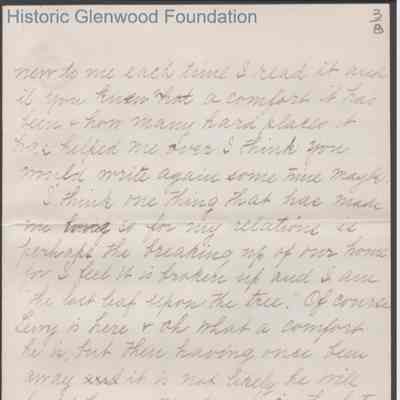 Historic Glenwood Foundation
3
B
new to me each time I read it and
if you knew what a comfort it has
been & how many hard places it
has helped me over I think you
would write again some time maybe.
I think one thing that has made
me long so for my relations is
perhaps the breaking up of our home
for I feel it is broken up and I am
the last leaf upon the tree. Of course
is here & oh what a comfort
he is, but then having once been
away it is not likely he will